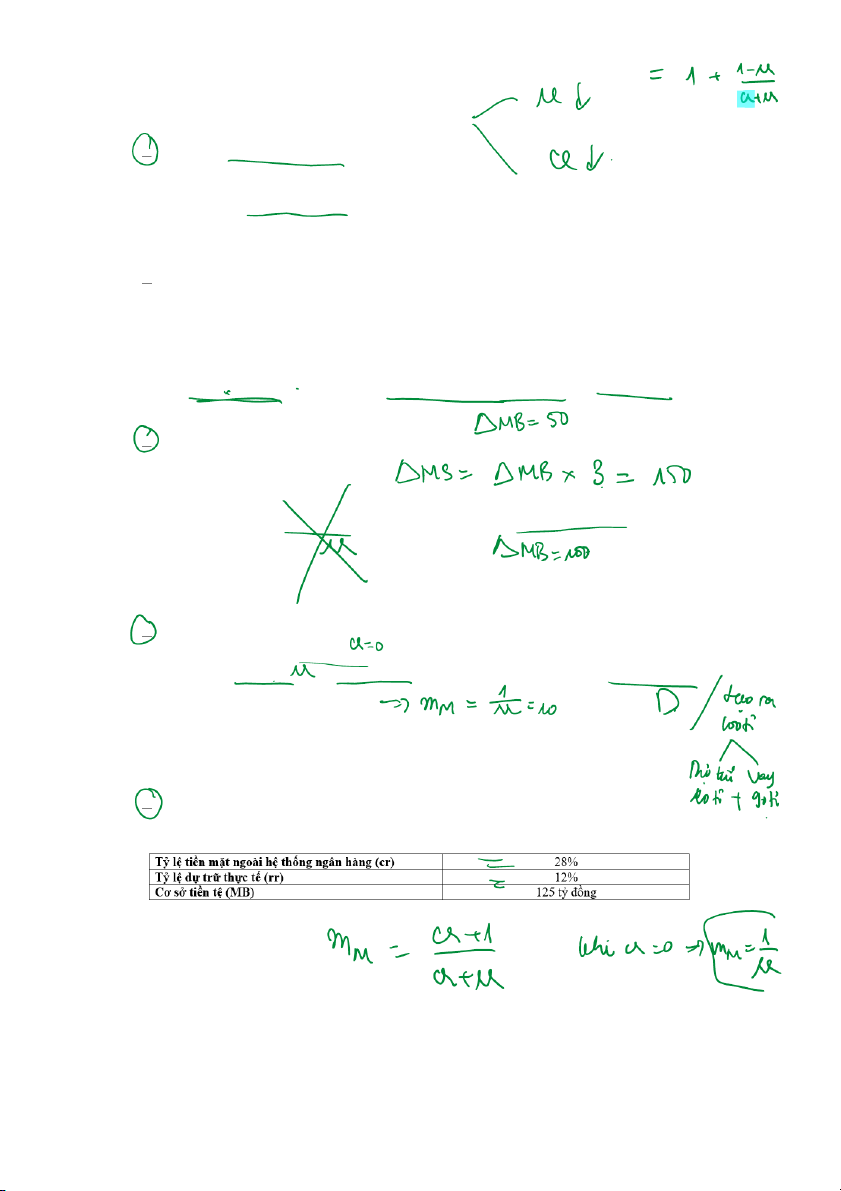 = 1 + (1-rr)/(cr+rr)
rr ↓
cr ↓
ΔMB = 50
ΔMS = ΔMB × 3 = 150
rr
ΔMB = 100
cr=0
rr
=> mM = 1/rr = 10
D / tạo ra
100 tỉ
Dự trữ vay
10 tỉ + 90 tỉ
Tỷ lệ tiền mặt ngoài hệ thống ngân hàng (cr) = 28%
Tỷ lệ dự trữ thực tế (rr) = 12%
Cơ sở tiền tệ (MB) 125 tỷ đồng
mM = (cr+1)/(cr+rr) khi cr=0 => mM = 1/rr